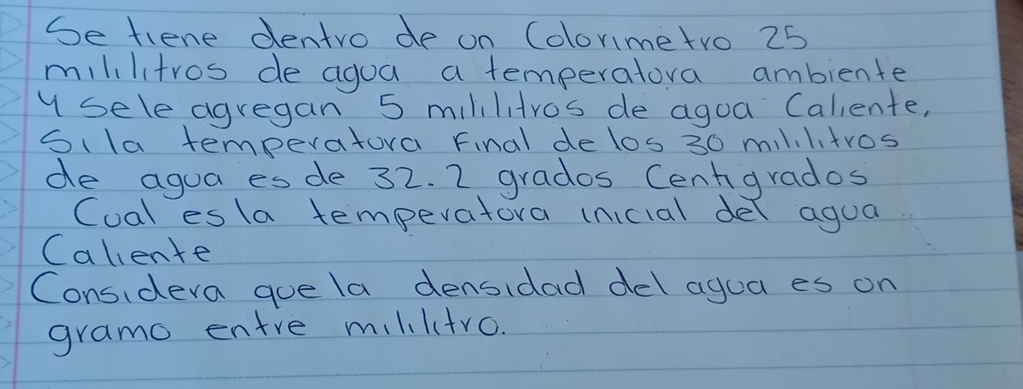 Se tiene dentro de un Colorimetro 25
mililitros de agua a temperatura ambiente
y se le agregan 5 mililitros de agua Caliente,
Si la temperatura Final de los 30 mililitros
de agua es de 32.2 grados Centigrados
Cual es la temperatura inicial del agua
Caliente
Considera que la densidad del agua es un
gramo entre mililitro.